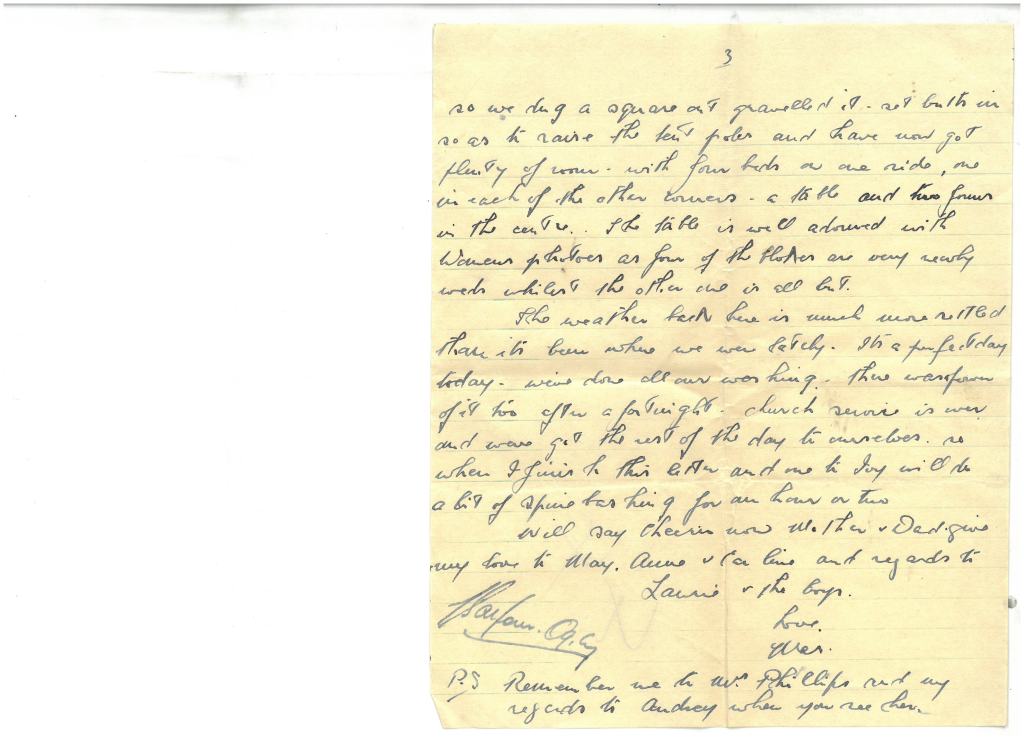 3
so we dug a square out gravelled it - set bolts in
so as to raise the tent poles and have now got
plenty of room - with four beds on one side, one
in each of the other corners - a table and two forms
in the centre.. The table is well adorned with
Womens photoes as four of the blokes are very newly
weds whilest the other one is all but.
The weather back here is much more settled
than its been where we were lately. Its a perfect day
today - weve done all our washing. there was
of it too after a fortnight - church service is over
and weve got the rest of the day to ourselves. so
when I finish this letter and one to Ivy will do
a bit of spine bashing for an hour or two
Will say Cheerio now Mother & Dad. give
my love to May. Anne & and regards to
Laurie & the boys.
Love.
P.S Remember me to Mrs. Phillips and my
regards to Audrey when you see her.